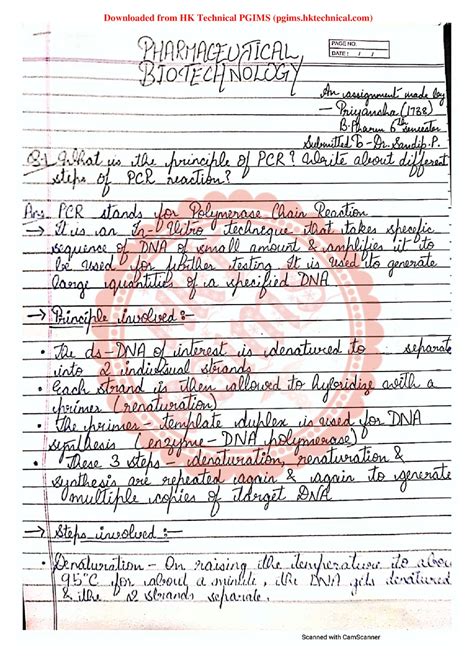 Downloaded from HK Technical PGIMS (pgims.hktechnical.com)
PHARMACEUTICAL
BIOTECHNOLOGY
PAGE NO.
DATE: / /
An assignment made by
- Priyansha (1738)
B.Pharm 6th semester
Submitted to - Dr. Sandip. P.
Q.1 What is the principle of PCR? Write about different
steps of PCR reaction?
Ans PCR stands for Polymerase Chain Reaction
→ It is an In-Vitro technique that takes specific
sequence of DNA of small amount & amplifies it to
be used for further testing. It is used to generate
large quantities of a specified DNA
→ Principle involved :-
• The ds-DNA of interest is denatured to separate
into 2 individual strands
• Each strand is then allowed to hybridize with a
primer (renaturation)
• The primer - template duplex is used for DNA
synthesis (enzyme - DNA polymerase)
• These 3 steps - denaturation, renaturation &
synthesis are repeated again & again to generate
multiple copies of target DNA
→ Steps involved :-
• Denaturation - On raising the temperature to about
95°C for about a minute, the DNA gets denatured
& the 2 strands separate.
HK
PGIMS
Scanned with CamScanner